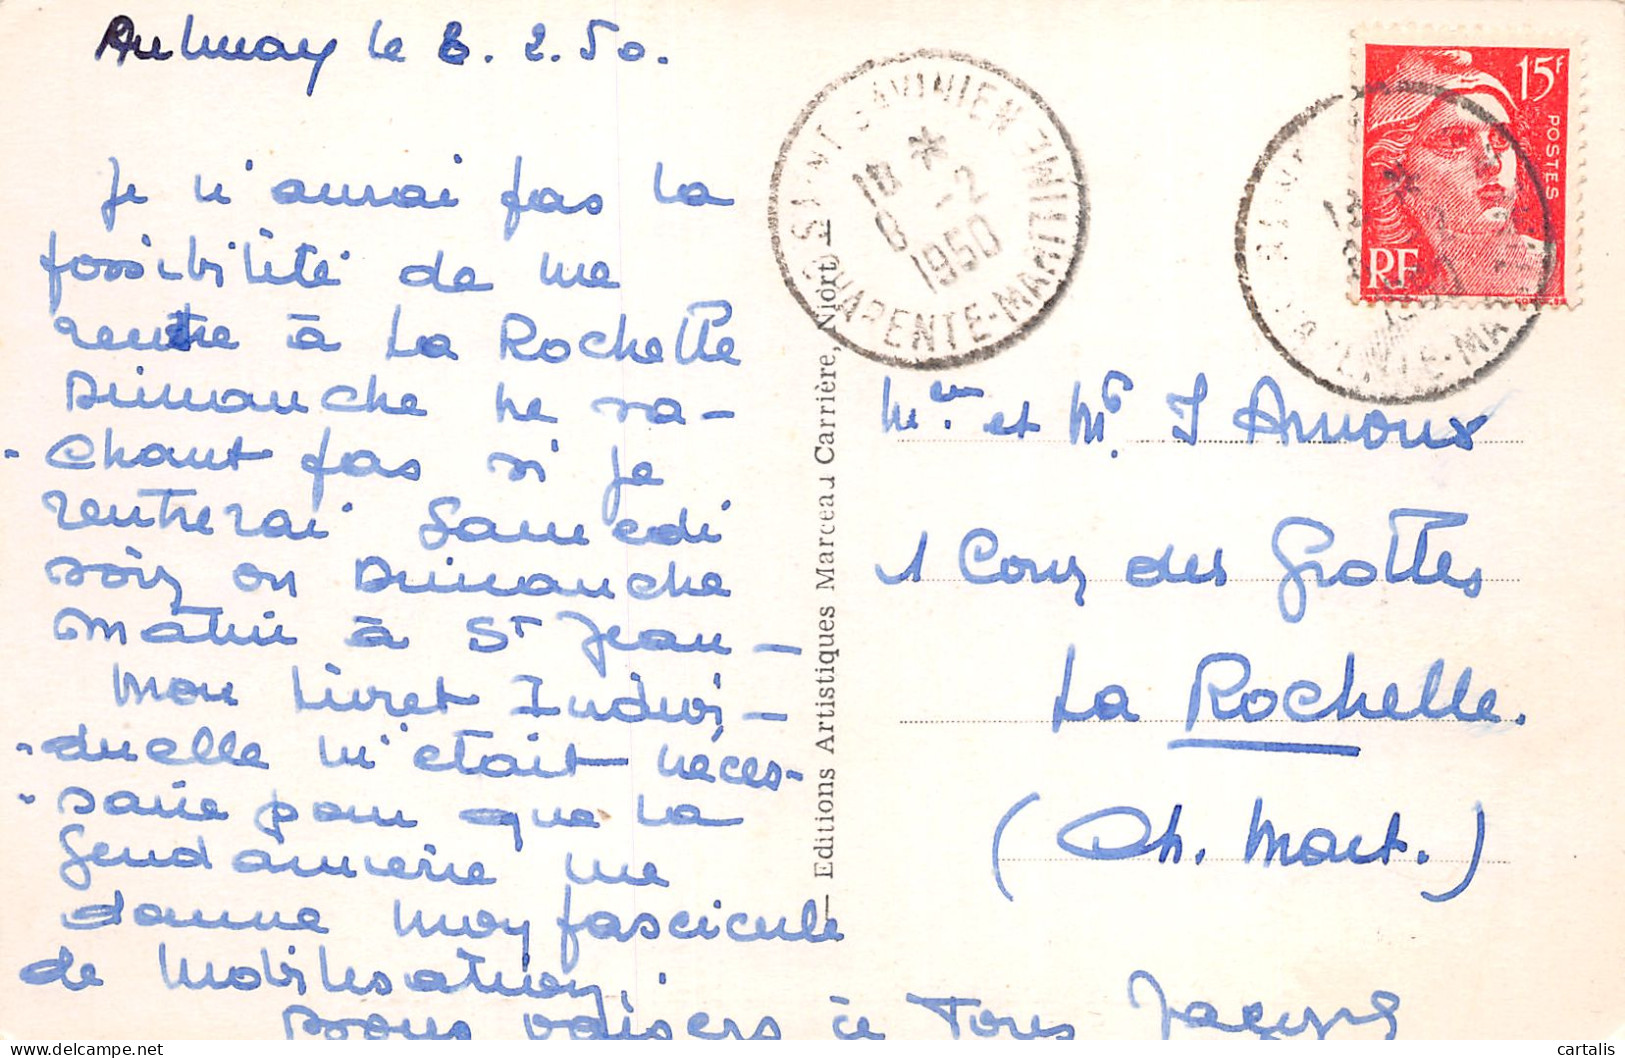 Aulnay le 8.2.50.
Je n'aurai pas la
possibilité de me
rentre à La Rochelle
Dimanche ne sa-
-chant pas si je
rentrerai Samedi
soir ou Dimanche
matin à St Jean-
Mon Livret Indivi-
-duelle m'était néces-
-saire pour que la
Gendarmerie me
donne mon fascicule
de Mobilisation.
Bons baisers à Tous Jacques
— Editions Artistiques Marceau Carrière, Niort —
SAINT SAVINIEN
18 *
8 -2
1950
CHARENTE-MARITIME
15F
POSTES
RF
Mme et Mr J Arnoux
1 Cour des Grottes
La Rochelle.
(Ch. Mart.)
cartalis